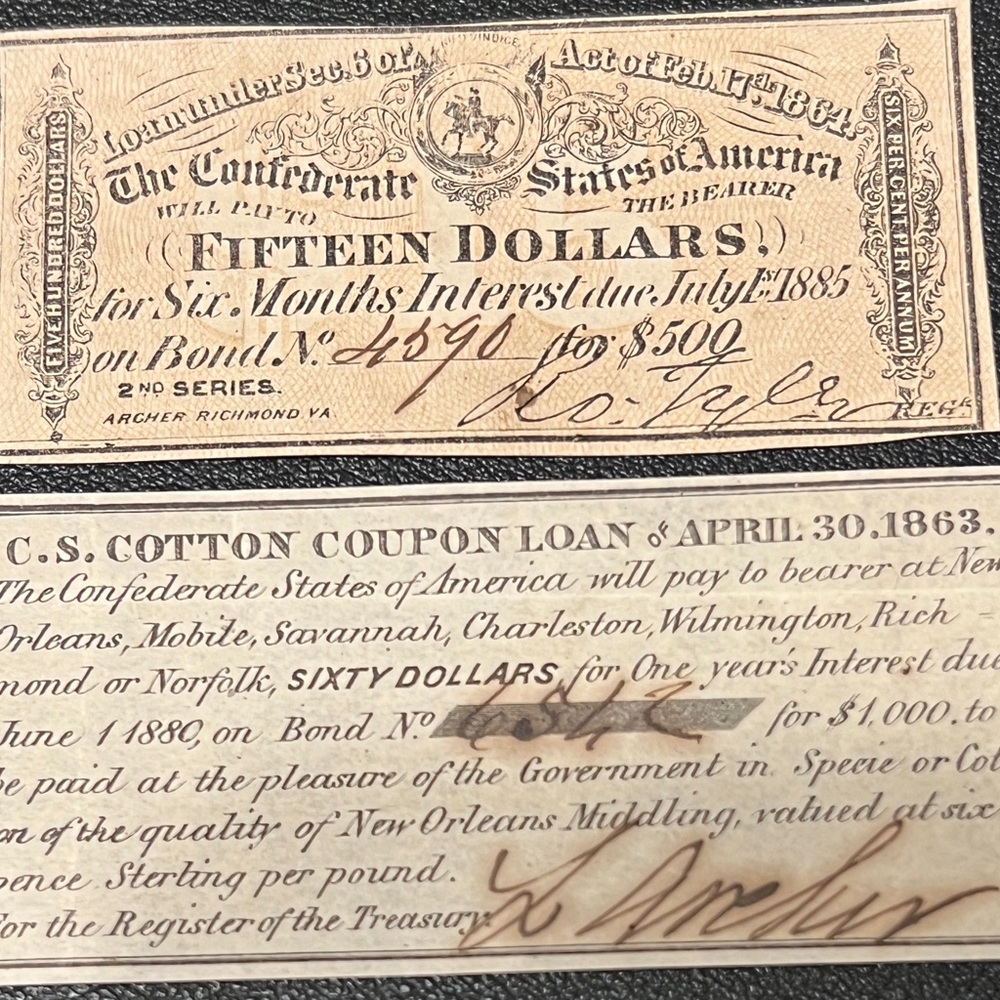 Loan under Sec. 6 of Act of Feb. 17th 1864.
FIVE HUNDRED DOLLARS
SIX PER CENT PER ANNUM
The Confederate States of America
WILL PAY TO THE BEARER
FIFTEEN DOLLARS,
for Six Months Interest due July 1st 1885
on Bond No. 4590 for $500
2ND SERIES.
Ro. Tyler REGR.
ARCHER RICHMOND VA
C. S. COTTON COUPON LOAN of APRIL 30. 1863.
The Confederate States of America will pay to bearer at New
Orleans, Mobile, Savannah, Charleston, Wilmington, Rich -
mond or Norfolk, SIXTY DOLLARS, for One year's Interest due
June 1 1880, on Bond No. for $1,000. to
be paid at the pleasure of the Government in Specie or Cot
on of the quality of New Orleans Middling, valued at six
pence Sterling per pound.
For the Register of the Treasury.